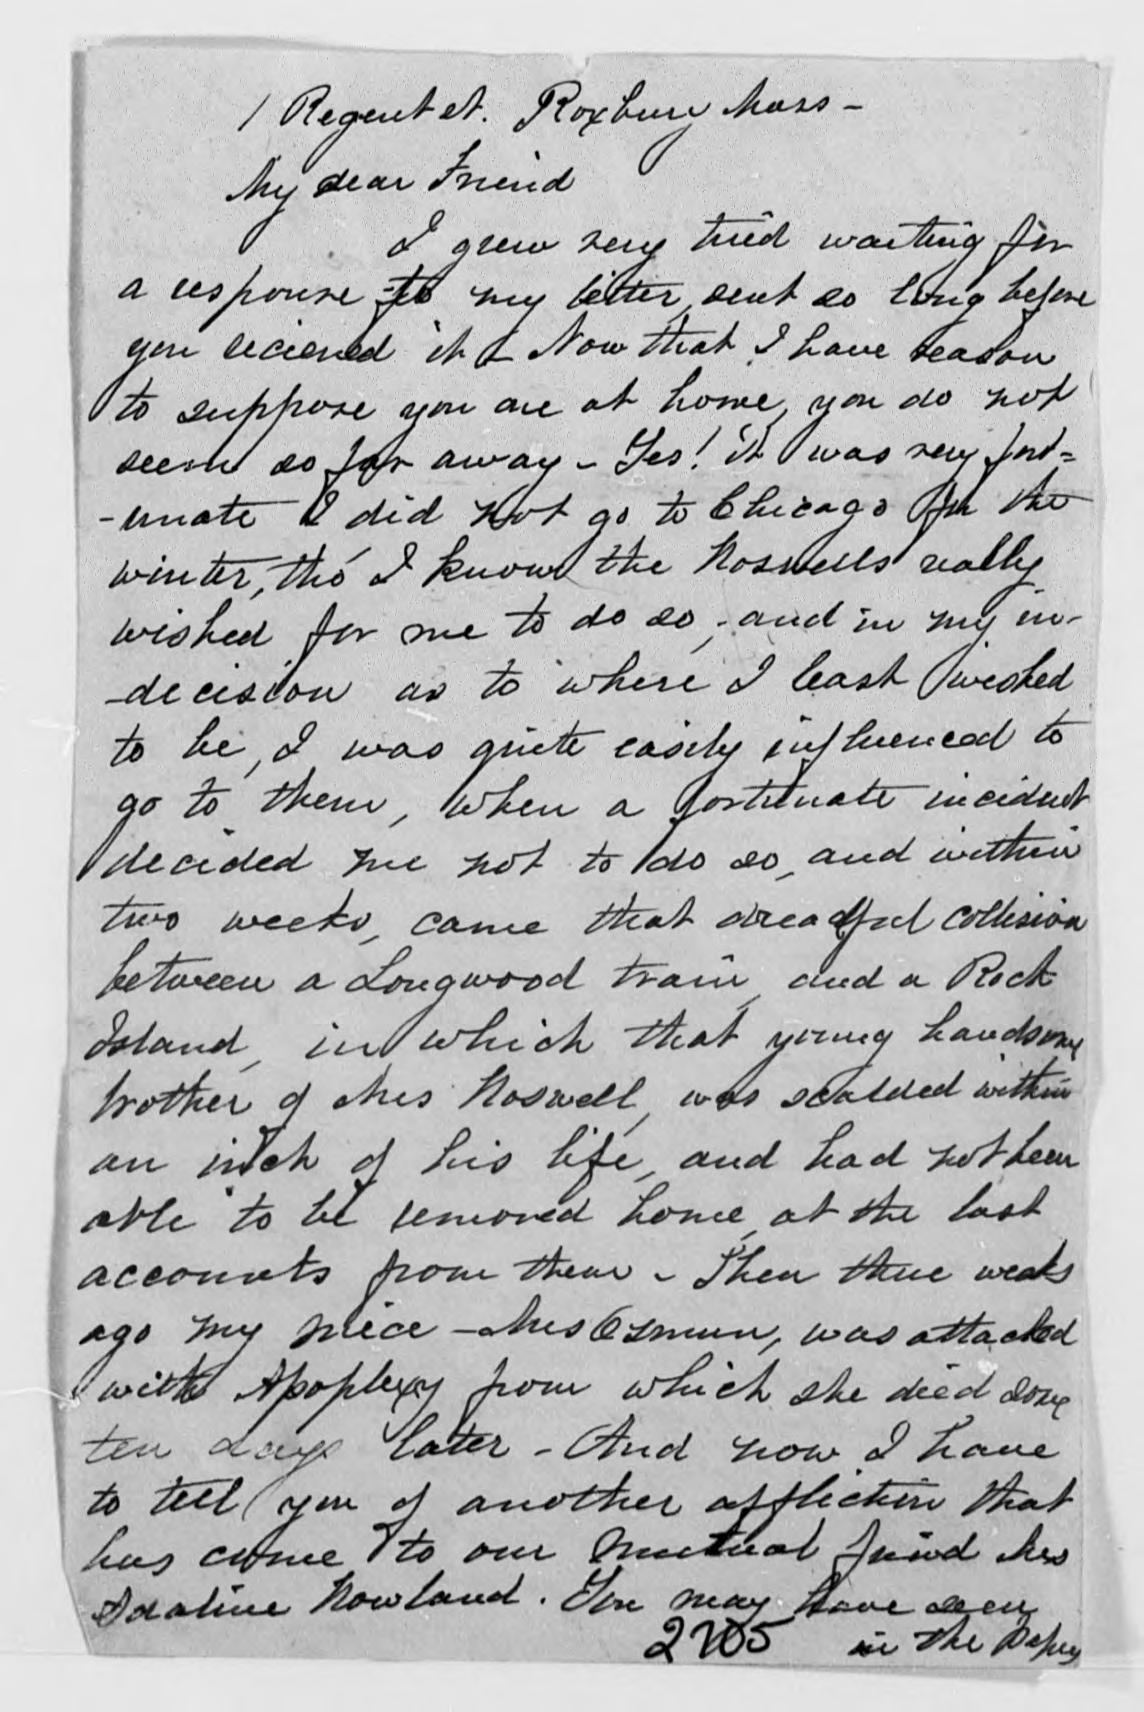 1 Regent st. Roxbury Mass -
My dear Friend
I grew very tired waiting for
a response to my letter, sent so long before
you recieved it - Now that I have reason
to suppose you are at home, you do not
seem so far away - Yes! it was very fort=
-unate I did not go to Chicago for the
winter, tho' I know the Noswells really
wished for me to do so, - and in my in-
-decision as to where I least wished
to be, I was quite easily influenced to
go to them, when a fortunate incident
decided me not to do so, and within
two weeks, came that dreadful collision
between a Longwood train, and a Rock
Island, in which that young handsome
brother of Mrs Noswell, was scalded within
an inch of his life, and had not been
able to be removed home, at the last
accounts from them - Then three weeks
ago my niece - Mrs Osmun, was attacked
with Apoplexy from which she died some
ten days later - And now I have
to tell you of another affliction that
has come to our mutual friend Mrs
Idaline Howland. You may have seen
2705 in the Papers